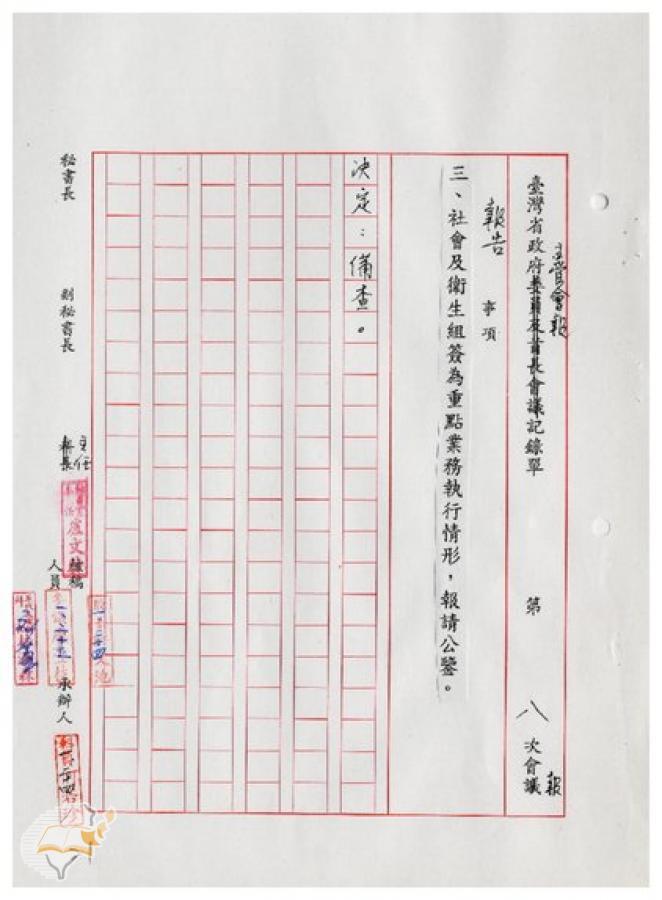 主管會報
臺灣省政府委員及首長會議記錄單 第 八 次會議
報
報告 事項
三、社會及衛生組簽為重點業務執行情形,報請公鑒。
決定:備查。
秘書長 副秘書長 科長 核稿人員 承辦人
主任